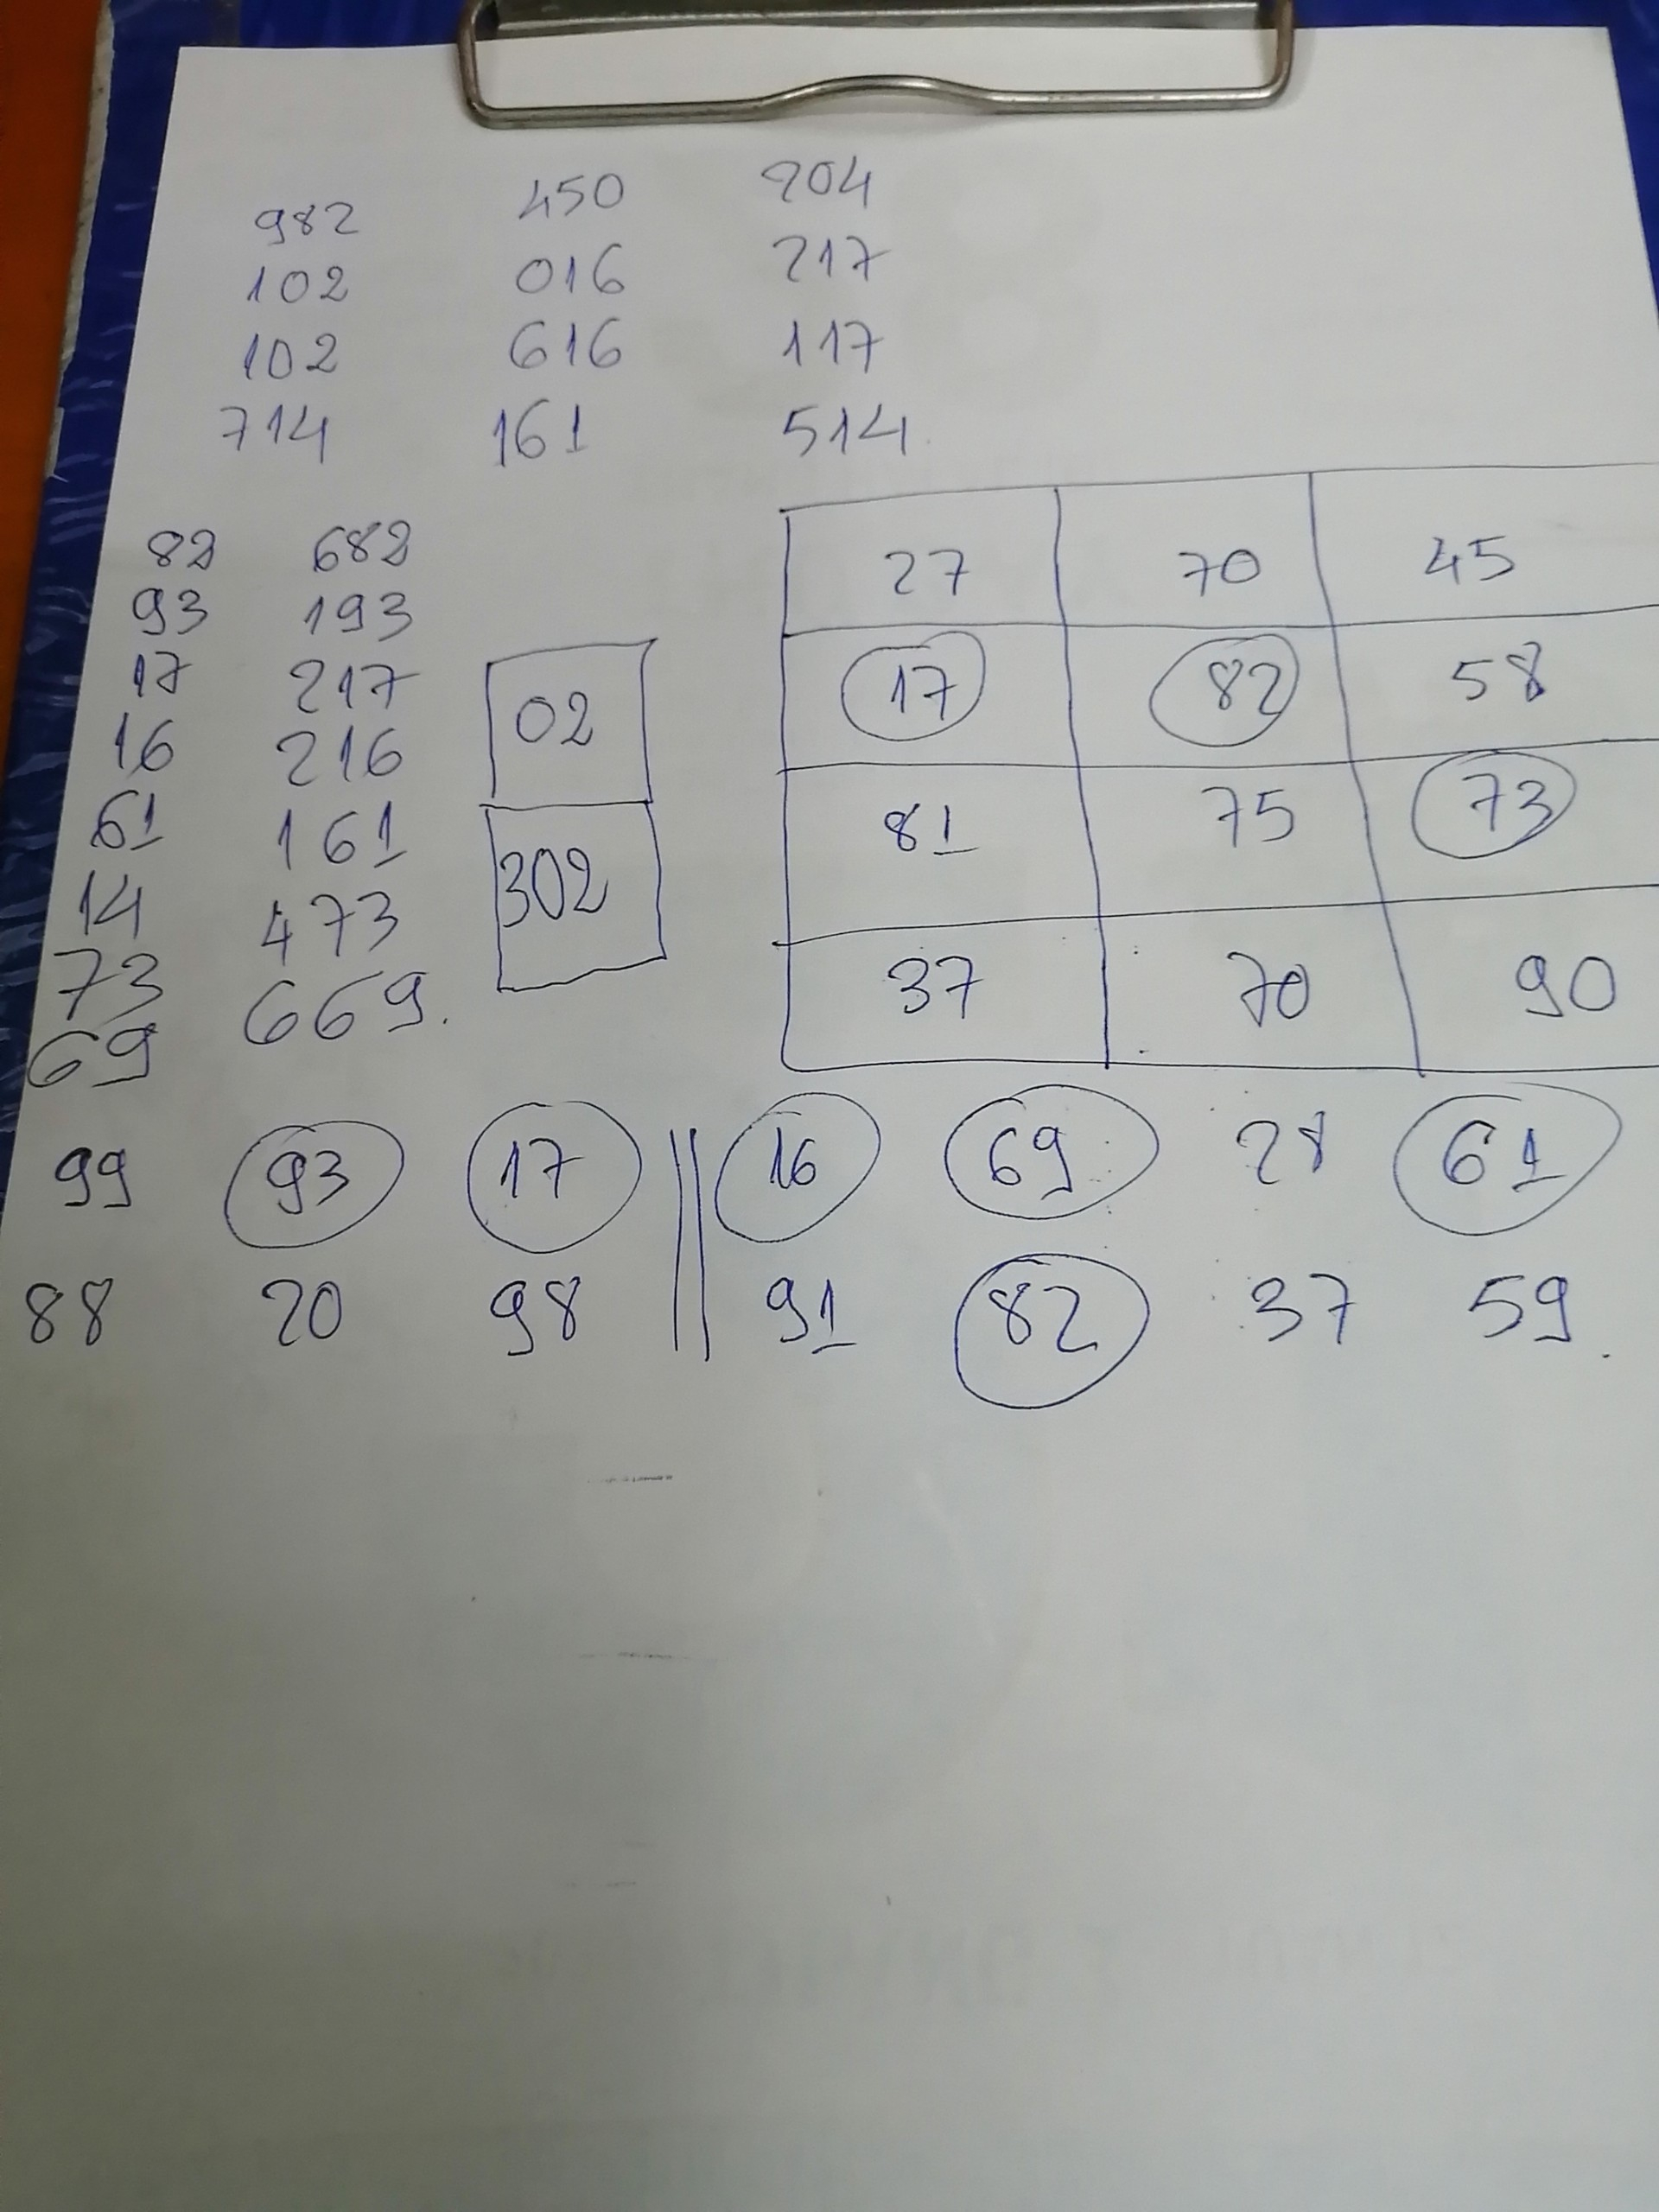 982 450 204
102 016 217
102 616 117
714 161 514
82 682
93 193
17 217
16 216
61 161
14 473
73 669.
69
02
302
27 70 45
17 82 58
81 75 73
37 70 90
99 93 17 16 69 28 61
88 20 98 91 82 37 59.